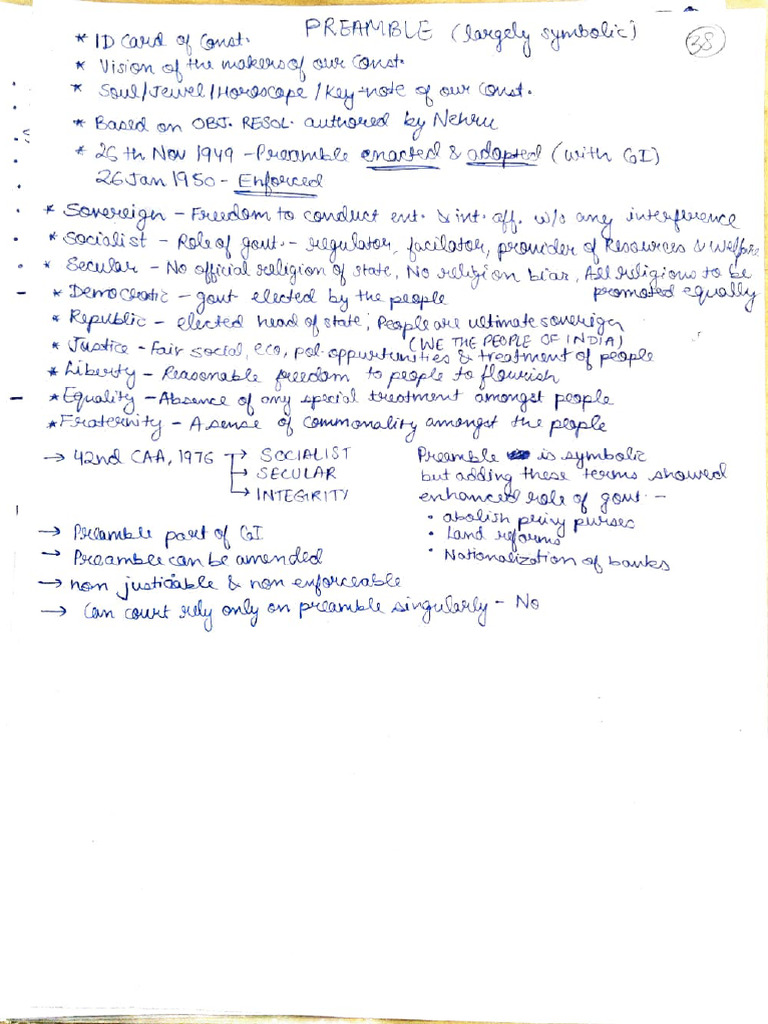 PREAMBLE (largely symbolic)
38
* ID Card of Const.
* Vision of the makers of our Const.
* Soul/Jewel/Horoscope/Key-note of our Const.
* Based on OBJ. RESOL. authored by Nehru
* 26th Nov 1949 - Preamble enacted & adopted (with GI)
26 Jan 1950 - Enforced
* Sovereign - Freedom to conduct ext. & int. aff. w/o any interference
* Socialist - Role of govt. - regulator, facilator, provider of Resources & Welfare
* Secular - No official religion of state, No religion bias, All religions to be promoted equally
* Democratic - govt elected by the people
* Republic - elected head of state; People are ultimate sovereign
(WE THE PEOPLE OF INDIA)
* Justice - Fair social, eco, pol. oppurtunities & treatment of people
* Liberty - Reasonable freedom to people to flourish
* Equality - Absence of any special treatment amongst people
* Fraternity - A sense of commonality amongst the people
→ 42nd CAA, 1976 → SOCIALIST
→ SECULAR
→ INTEGRITY
Preamble is symbolic
but adding these terms showed
enhanced role of govt -
• abolish privy purses
• Land reforms
• Nationalization of banks
→ Preamble part of GI
→ Preamble can be amended
→ non justiciable & non enforceable
→ Can court rely only on preamble singularly - No